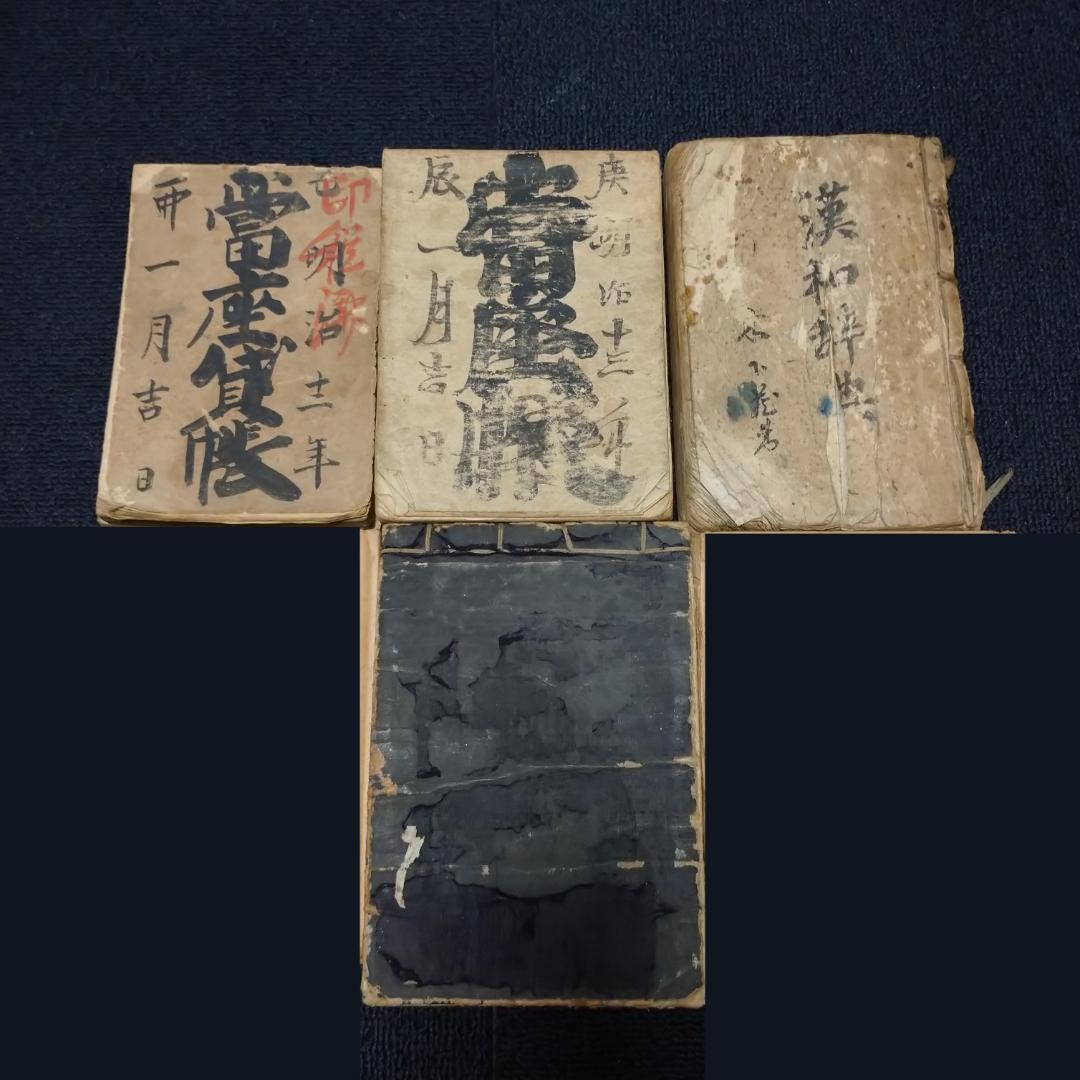 明治十二年
當座貸帳
丣一月吉日
庚明治十三年
當座帳
辰一月吉日
漢和辞典